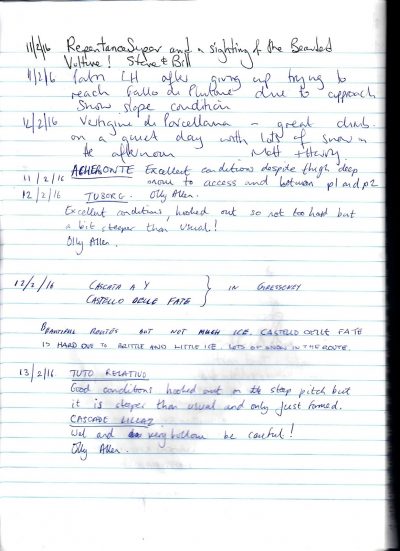 11/2/16 Repentance Super and a sighting of the Bearded
Vulture! Steve & Bill
11/2/16 Patri LH after giving up trying to
reach Fallo di Plutone due to approach
Snow slope condition
12/2/16 Vertigine di Porcellana - great climb
on a quiet day with lots of snow in
the afternoon Matt + Harry.
ACHERONTE Excellent conditions despite thigh deep
11/2/16 snow to access and between p1 and p2
12/2/16 TUBORG. Olly Allen.
Excellent conditions, hooked out so not too hard but
a bit steeper than usual!
Olly Allen.
12/2/16 CASCATA A Y
CASTELLO DELLE FATE } IN GRESSONEY
BEAUTIFUL ROUTES BUT NOT MUCH ICE. CASTELLO DELLE FATE
IS HARD DUE TO BRITTLE AND LITTLE ICE. LOTS OF SNOW IN THE ROUTE.
13/2/16 TUTO RELATIVO
Good conditions hooked out on the steep pitch but
it is steeper than usual and only just formed.
CASCADE LILLAZ
Wet and very hollow be careful!
Olly Allen.